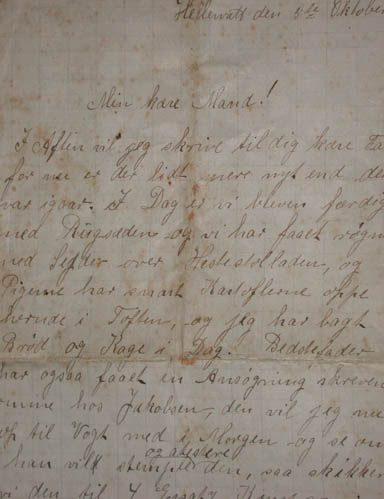 Hellewatt den 5te Oktober
Min kære Mand!
I Aften vil jeg skrive til dig kære Fa
for nu er der lidt mere nyt end de
var igaar. I Dag er vi bleven færdig
med Rugsæden og vi har faaet røgn
ned over Hestestalladen, og
Pigerne har snart Kartoflerne oppe
hernde i Toften, og jeg har bagt
Brød og Kage i Dag. Bedstefader
har ogsaa faaet en Ansøgning skreven
omme hos Jakobsen, den vil jeg nu
op til Vogt med i Morgen og se om
og atestere
han vilt stemple den, saa skikker
vi den til